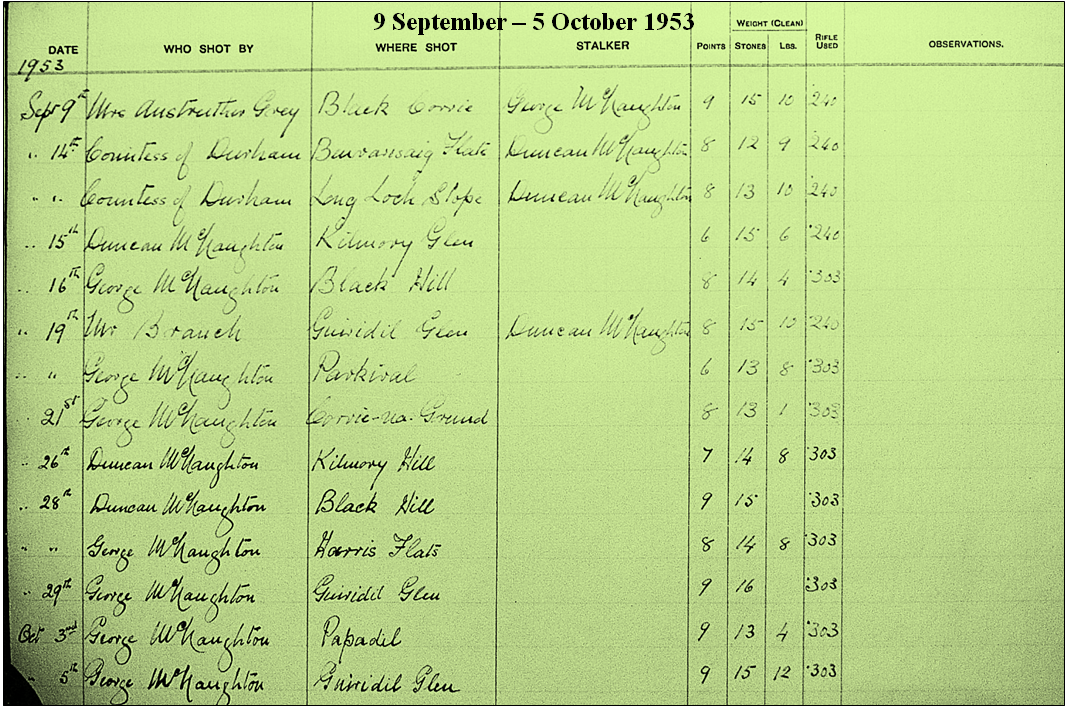 9 September – 5 October 1953
DATE WHO SHOT BY WHERE SHOT STALKER POINTS WEIGHT (CLEAN) STONES LBS. RIFLE USED OBSERVATIONS.
1953
Sept 9th Mrs Anstruther Grey Black Corrie George McNaughton 9 15 10 .240
" 14th Countess of Durham Flats Duncan McNaughton 8 12 9 .240
" " Countess of Durham Long Loch Slope Duncan McNaughton 8 13 10 .240
" 15th Duncan McNaughton Kilmory Glen 6 15 6 .240
" 16th George McNaughton Black Hill 8 14 4 .303
" 19th Mr Branch Guiridil Glen Duncan McNaughton 8 15 10 .240
" " George McNaughton Parkival 6 13 8 .303
" 21st George McNaughton Corrie-na-Grund 8 13 1 .303
" 26th Duncan McNaughton Kilmory Hill 7 14 8 .303
" 28th Duncan McNaughton Black Hill 9 15 .303
" " George McNaughton Harris Flats 8 14 8 .303
" 29th George McNaughton Guiridil Glen 9 16 .303
Oct 3rd George McNaughton Papadil 9 13 4 .303
" 5th George McNaughton Guiridil Glen 9 15 12 .303